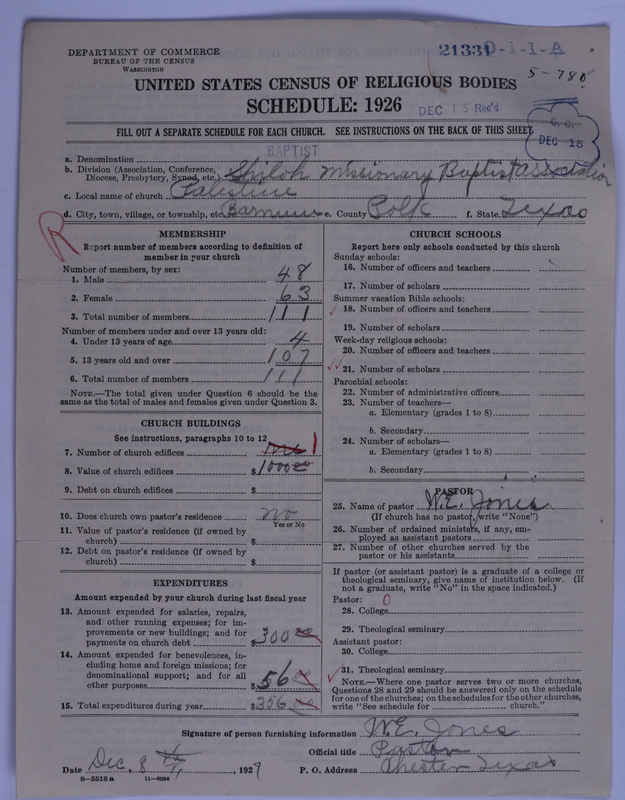 DEPARTMENT OF COMMERCE
BUREAU OF THE CENSUS
WASHINGTON
21331 0-1-1-A
5-780
UNITED STATES CENSUS OF RELIGIOUS BODIES
SCHEDULE: 1926
DEC 15 Rec'd
FILL OUT A SEPARATE SCHEDULE FOR EACH CHURCH. SEE INSTRUCTIONS ON THE BACK OF THIS SHEET
DEC 15
BAPTIST
a. Denomination
b. Division (Association, Conference, Diocese, Presbytery, Synod, etc.) Shiloh Missionary Baptist Association
c. Local name of church Palestine
d. City, town, village, or township, etc. e. County Polk f. State Texas
R
MEMBERSHIP
Report number of members according to definition of
member in your church
Number of members, by sex:
1. Male 48
2. Female 63
3. Total number of members 111
Number of members under and over 13 years old:
4. Under 13 years of age 4
5. 13 years old and over 107
6. Total number of members 111
NOTE.—The total given under Question 6 should be
same as the total of males and females given under Question 3.
CHURCH BUILDINGS
See instructions, paragraphs 10 to 12
7. Number of church edifices 1
8. Value of church edifices $1000.00
9. Debt on church edifices $
10. Does church own pastor's residence No
Yes or No
11. Value of pastor's residence (if owned by
church) $
12. Debt on pastor's residence (if owned by
church) $
EXPENDITURES
Amount expended by your church during last fiscal year
13. Amount expended for salaries, repairs,
and other running expenses; for im-
provements or new buildings; and for
payments on church debt $300 00
14. Amount expended for benevolences, in-
cluding home and foreign missions; for
denominational support; and for all
other purposes $56 00
15. Total expenditures during year $356 00
CHURCH SCHOOLS
Report here only schools conducted by this church
Sunday schools:
16. Number of officers and teachers
17. Number of scholars
Summer vacation Bible schools:
18. Number of officers and teachers
19. Number of scholars
Week-day religious schools:
20. Number of officers and teachers
21. Number of scholars
Parochial schools:
22. Number of administrative officers
23. Number of teachers—
a. Elementary (grades 1 to 8)
b. Secondary
24. Number of scholars—
a. Elementary (grades 1 to 8)
b. Secondary
PASTOR
25. Name of pastor W.E. Jones
(If church has no pastor, write "None")
26. Number of ordained ministers, if any, em-
ployed as assistant pastors
27. Number of other churches served by the
pastor or his assistants
If pastor (or assistant pastor) is a graduate of a college or
theological seminary, give name of institution below. (If
not a graduate, write "No" in the space indicated.)
Pastor: 0
28. College
29. Theological seminary
Assistant pastor:
30. College
31. Theological seminary
NOTE.—Where one pastor serves two or more churches,
Questions 28 and 29 should be answered only on the schedule
for one of the churches; on the schedules for the other churches,
write "See schedule for church."
Signature of person furnishing information W.E. Jones
Official title Pastor
Date Dec. 8, 1927 P. O. Address Chester Texas
8—5518a 11—9064